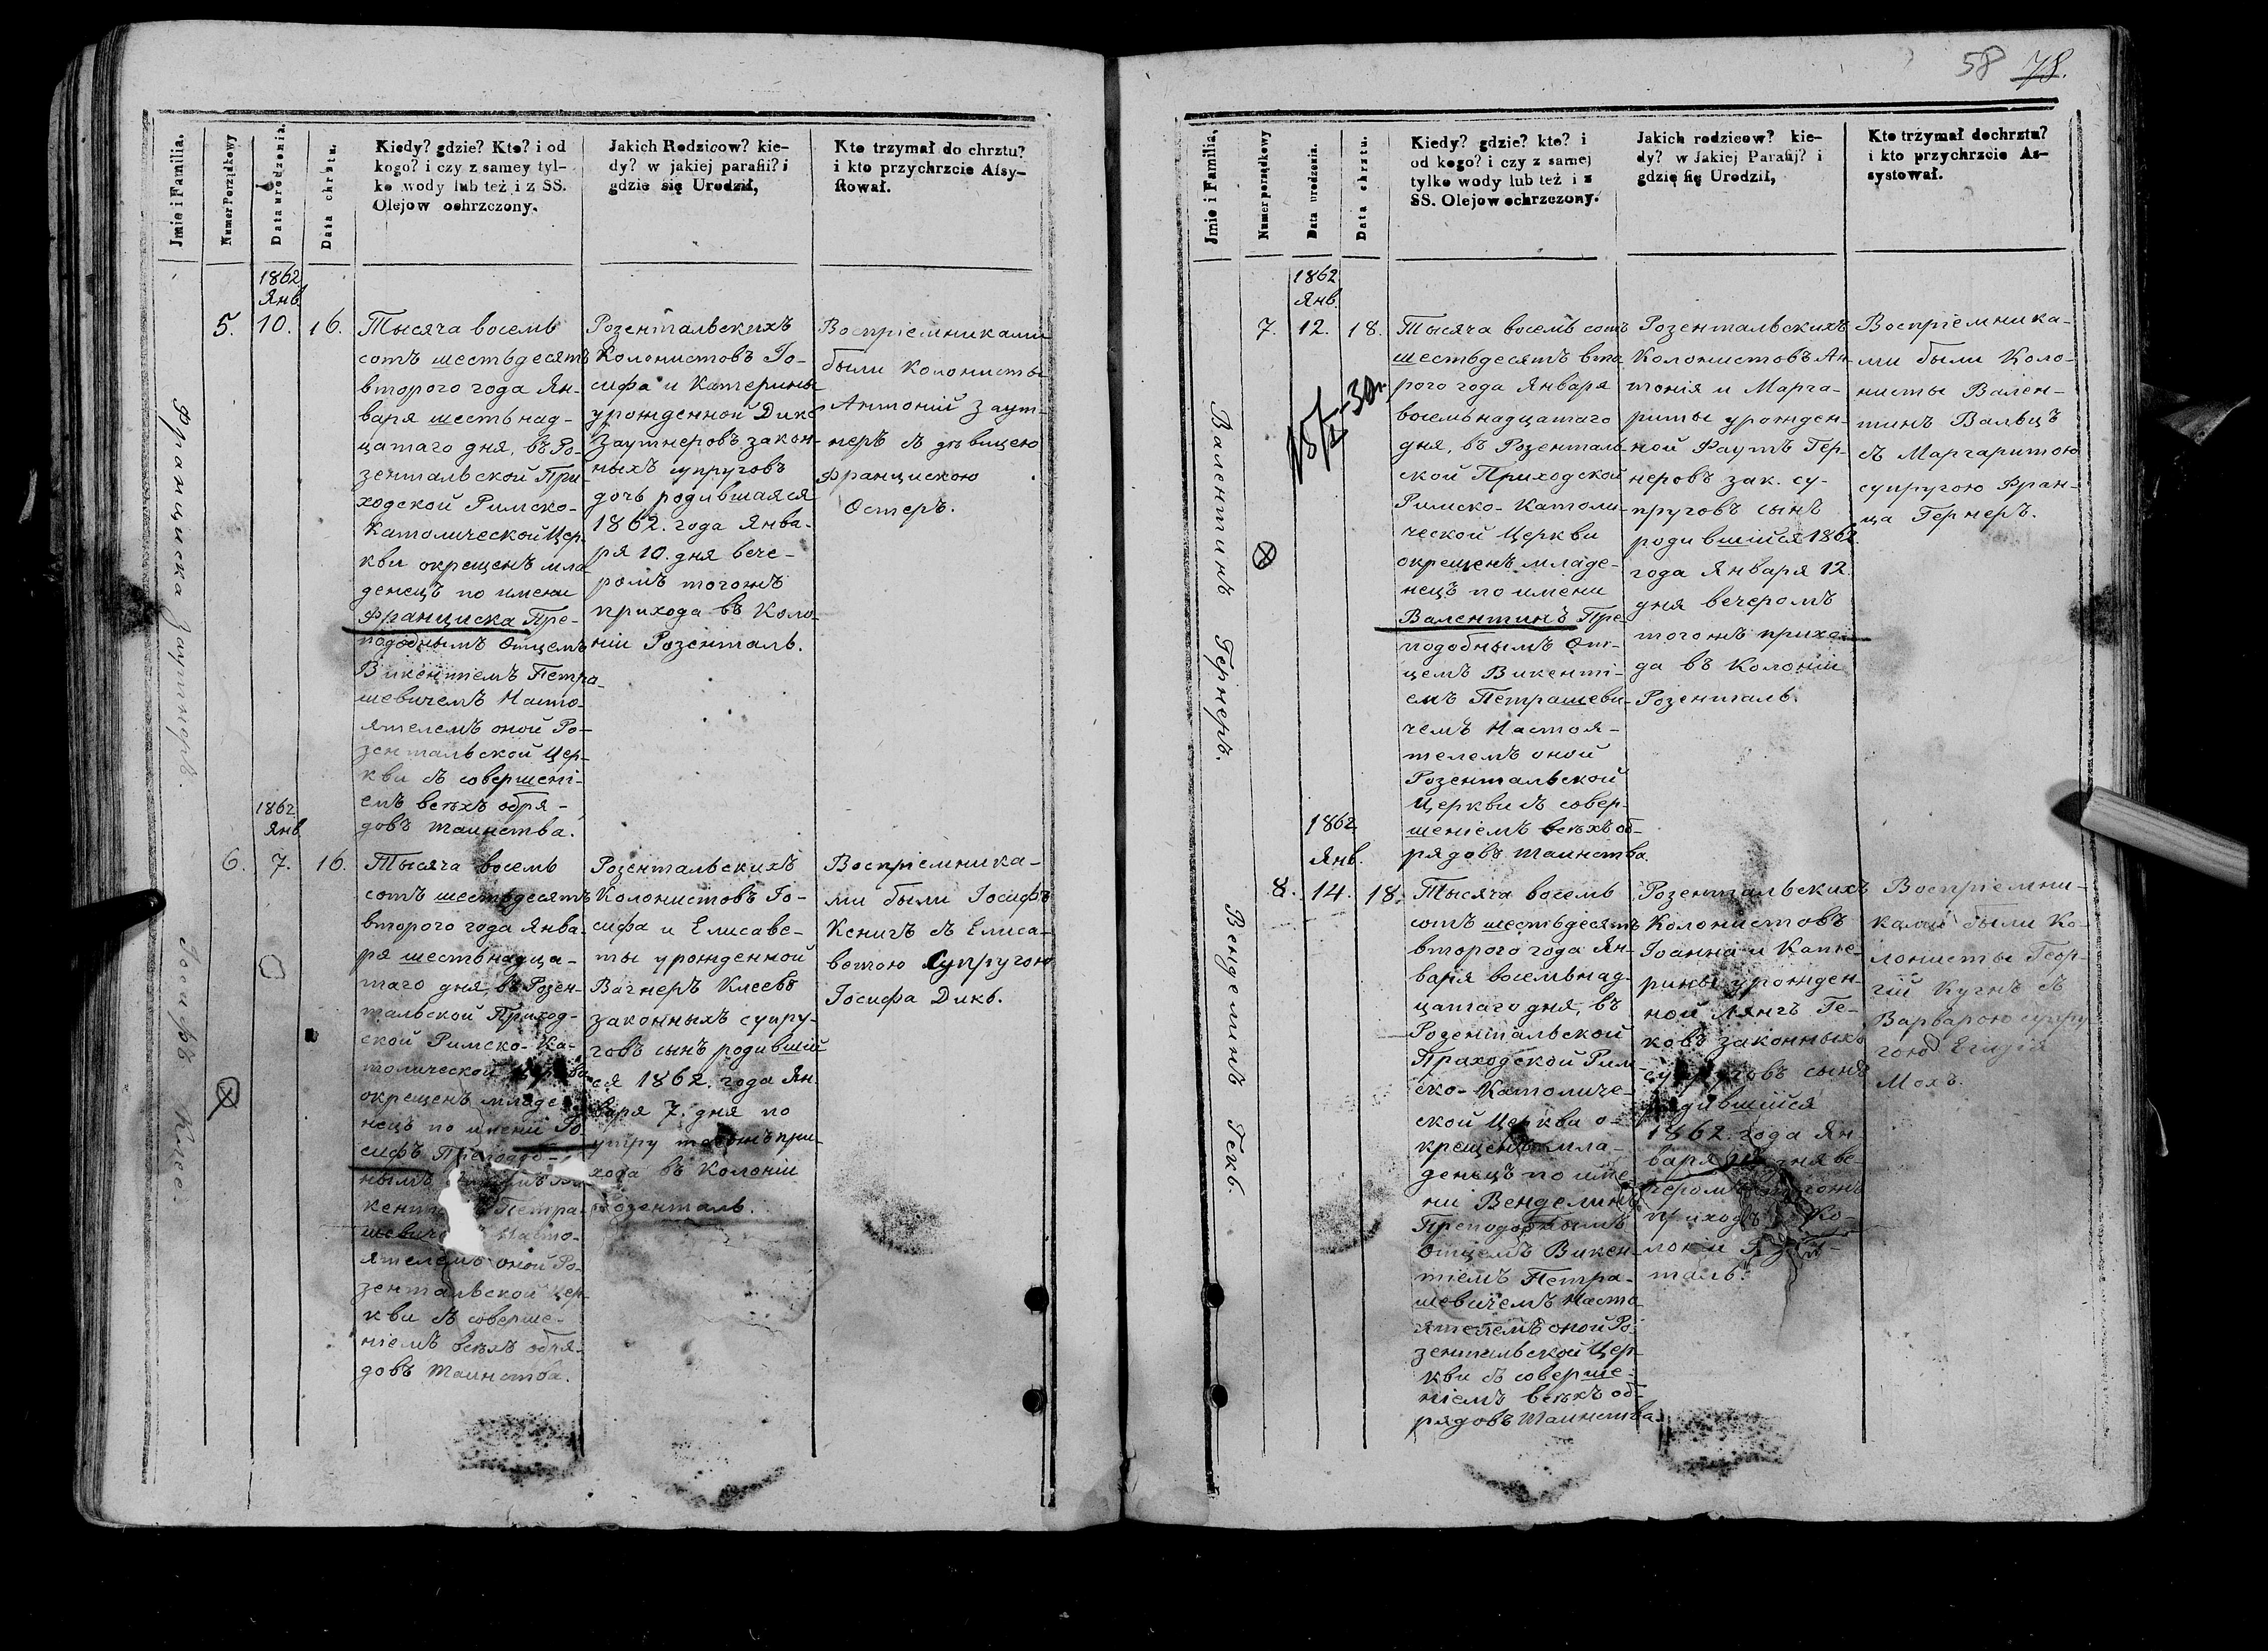 58 78.
Jmie i Familia.
Numer Porządkowy
Data urodzenia.
Data chrztu.
Kiedy? gdzie? Kto? i od
kogo? i czy z samey tyl-
ko wody lub też i z SS.
Olejow ochrzczony.
Jakich Rodzicow? kie-
dy? w jakiej parafii? i
gdzie się Urodził,
Kto trzymał do chrztu?
i kto przychrzcie Assy-
stował.
Франциска Заутнеръ.
1862
Янв.
5. 10. 16.
Тысяча восемь
сотъ шестьдесятъ
второго года Ян-
варя шестьнад-
цатаго дня, въ Ро-
зентальской При-
ходской Римско-
Католической Цер-
кви окрещенъ мла-
денецъ по имени
Франциска Пре-
подобнымъ Отцемъ
Викентіемъ Петра-
шевичемъ Насто-
ятелемъ оной Ро-
зентальской Цер-
кви съ совершені-
емъ всѣхъ обря-
довъ таинства.
Розентальскихъ
Колонистовъ Іо-
сифа и Катерины
урожденной Дикъ
Заутнеровъ закон-
ныхъ супруговъ
дочь родившаяся
1862. года Янва-
ря 10. дня вече-
ромъ тогожъ
прихода въ Коло-
ніи Розенталь.
Воспріемниками
были Колонисты
Антоній Заут-
неръ съ дѣвицею
Францискою
Остеръ.
Іосифъ Клее.
1862
Янв.
6. 7. 16.
Тысяча восемь
сотъ шестьдесятъ
второго года Янва-
ря шестьнадца-
таго дня, въ Розен-
тальской Приход-
ской Римско-Ка-
толической
окрещенъ младе-
нецъ по имени Іо-
сифъ Преподоб-
нымъ
Петра-
Насто-
ятелемъ оной Ро-
зентальской Цер-
кви съ соверше-
ніемъ всѣхъ обря-
довъ таинства.
Розентальскихъ
Колонистовъ Іо-
сифа и Елисаве-
ты урожденной
Вагнеръ Клеевъ
законныхъ супру-
говъ сынъ родившій
ся 1862. года Ян-
варя 7. дня по
утру тогожъ при-
хода въ Колоніи
Розенталь.
Воспріемника-
ми были Іосифъ
Кенигъ съ Елиса-
ветою Супругою
Іосифа Дикъ.
Jmie i Familia,
Numer porządkowy
Data urodzenia.
Data chrztu.
Kiedy? gdzie? kto? i
od kogo? i czy z samej
tylko wody lub też i z
SS. Olejow ochrzczony.
Jakich rodzicow? kie-
dy? w Jakiej Parafij? i
gdzie się Urodził,
Kto trzymał dochrztu?
i kto przychrzcie As-
systował.
Валентинъ Гернеръ.
1862
Янв.
7. 12. 18.
Тысяча восемь сотъ
шестьдесятъ вто-
рого года Января
восемьнадцатаго
дня, въ Розенталь-
ской Приходской
Римско-Католи-
ческой Церкви
окрещенъ младе-
нецъ по имени
Валентинъ Пре-
подобнымъ От-
цемъ Викенті-
емъ Петрашеви-
чемъ Настоя-
телемъ оной
Розентальской
Церкви съ совер-
шеніемъ всѣхъ об-
рядовъ таинства.
Розентальскихъ
Колонистовъ Ан-
тонія и Марга-
риты урожден-
ной Фаутъ Гер-
неровъ зак. су-
пруговъ сынъ
родившійся 1862.
года Января 12.
дня вечеромъ
тогожъ прихо-
да въ Колоніи
Розенталь.
Воспріемника-
ми были Коло-
нисты Вален-
тинъ Вальцъ
съ Маргаритою
супругою Фран-
ца Гернеръ.
Венделинъ Гекъ.
1862
Янв.
8. 14. 18.
Тысяча восемь
сотъ шестьдесятъ
второго года Ян-
варя восемьнад-
цатаго дня, въ
Розентальской
Приходской Рим-
ско-Католиче-
ской Церкви о-
крещенъ мла-
денецъ по име-
ни Венделинъ
Преподобнымъ
Отцемъ Викен-
тіемъ Петра-
шевичемъ Насто-
ятелемъ оной Ро-
зентальской Цер-
кви съ соверше-
ніемъ всѣхъ об-
рядовъ таинства.
Розентальскихъ
Колонистовъ
Іоанна и Кате-
рины урожден-
ной Лянгъ Ге-
ковъ законныхъ
супруговъ сынъ
родившійся
1862. года Ян-
варя дня ве-
черомъ тогожъ
Ко-
лоніи
таль.
Воспріемни-
ками были Ко-
лонисты Геор-
гій Кунъ съ
Варварою супру
гою Егидія
Мохъ.